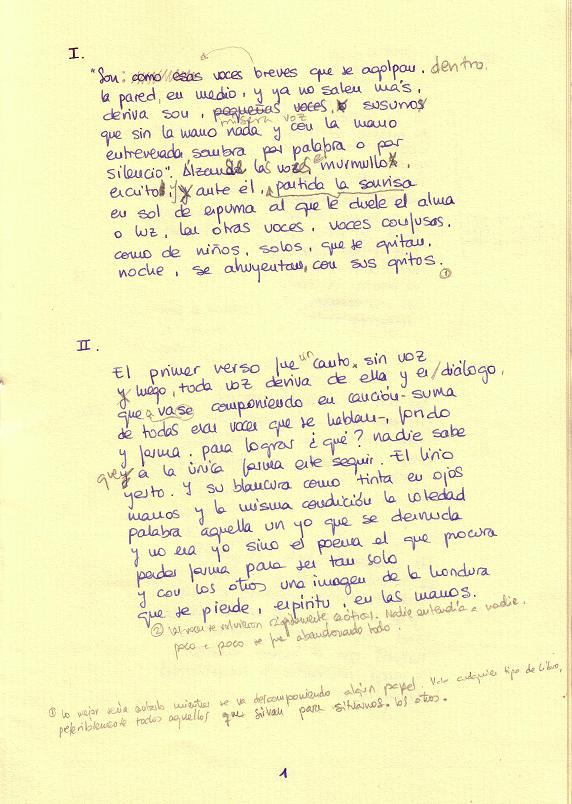 I.
"Son: como esas voces breves que se agolpan, dentro.
la pared, en medio, y ya no salen más,
deriva son, pequeñas voces, y susurros
misma voz
que sin la mano nada y con la mano
entreverada sombra por palabra o por
silencio". Alzando las voces murmullo
escrito; y ante él, partida la sonrisa
en sol de espuma al que le duele el alma
o luz, las otras voces, voces confusas,
como de niños, solos, que se gritan,
noche, se ahuyentan, con sus gritos. ①
II.
El primer verso fue un canto, sin voz
y luego, toda voz deriva de ella y en/diálogo,
que vase componiendo en canción-suma
de todas esas voces que se hablan-, fondo
y forma, para lograr ¿qué? nadie sabe
que y a la única forma este seguir. El lirio
yerto. Y su blancura como tinta en ojos
manos y la misma condición la soledad
palabra aquella un yo que se desnuda
y no era yo sino el poema el que procura
perder forma para ser tan solo
y con los otros una imagen de la hondura
que se pierde, espíritu, en las manos.
② Las voces se volvieron rápidamente caóticas. Nadie entendía a nadie,
poco a poco se fue abandonando todo.
① Lo mejor sería anotarlo mientras se va descomponiendo algún papel. Vale cualquier tipo de libro,
preferiblemente todos aquellos que sirvan para situarnos. los otros.
1